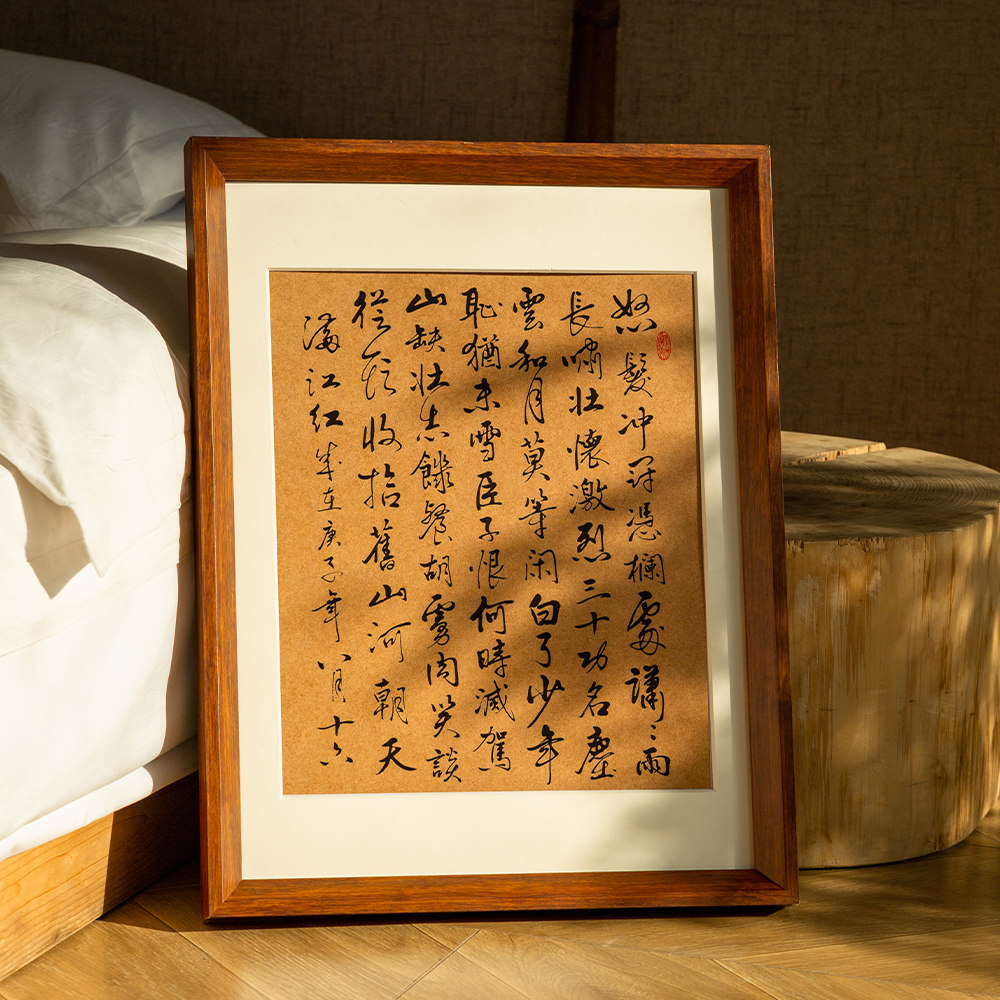 怒髮冲冠憑欄處瀟〻雨
長嘯壯懷激烈三十功名塵
雲和月莫等闲白了少年
恥猶未雪臣子恨何時滅駕
山缺壯志饑餐胡虜肉笑談
從頭收拾舊山河朝天
滿江紅歲在庚子年八月十六